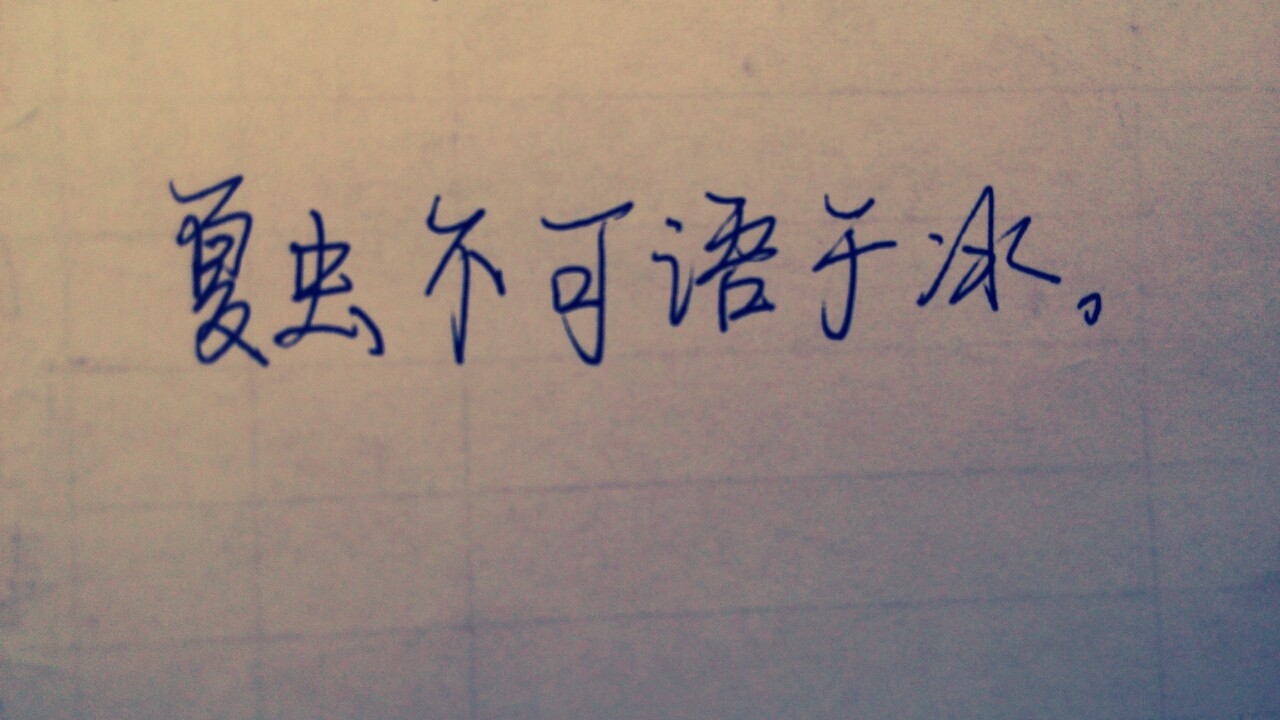 夏虫不可语于冰。